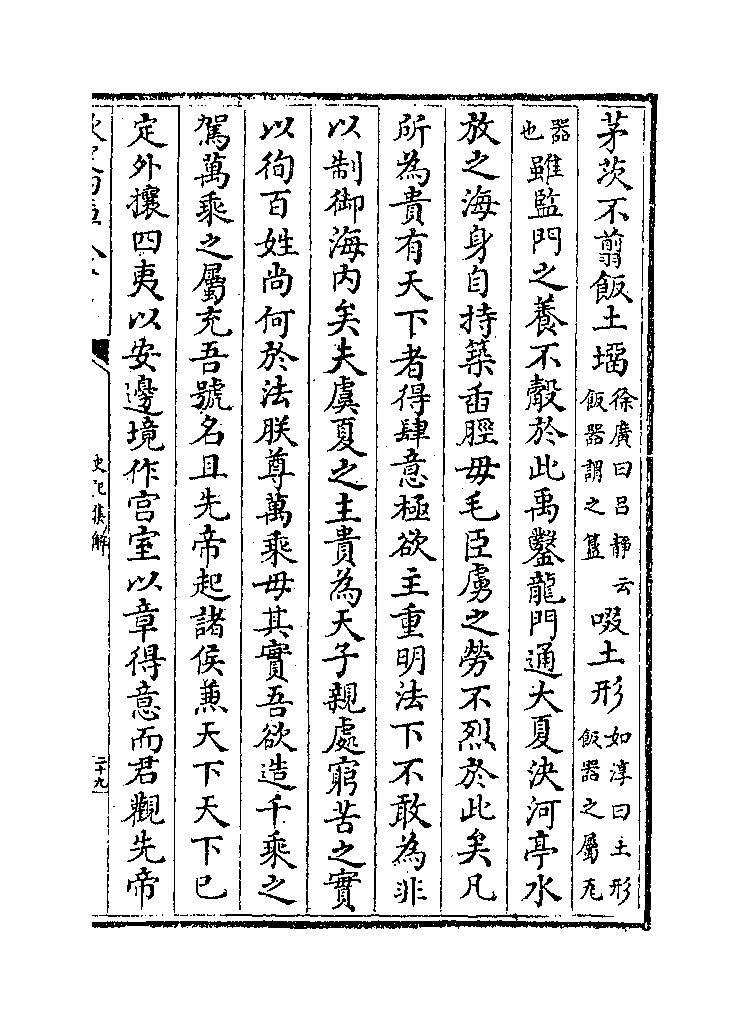 茅茨不翦飯土塯徐廣曰吕靜云飯器謂之簋啜土形如淳曰土形飯器之屬瓦
器也雖監門之養不觳於此禹鑿龍門通大夏決河亭水
放之海身自持築臿脛毋毛臣虜之勞不烈於此矣凡
所為貴有天下者得肆意極欲主重明法下不敢為非
以制御海内矣夫虞夏之主貴為天子親處窮苦之實
以徇百姓尚何於法朕尊萬乘毋其實吾欲造千乘之
駕萬乘之屬充吾號名且先帝起諸侯兼天下天下已
定外攘四夷以安邊境作宫室以章得意而君觀先帝
史記集解
二十九